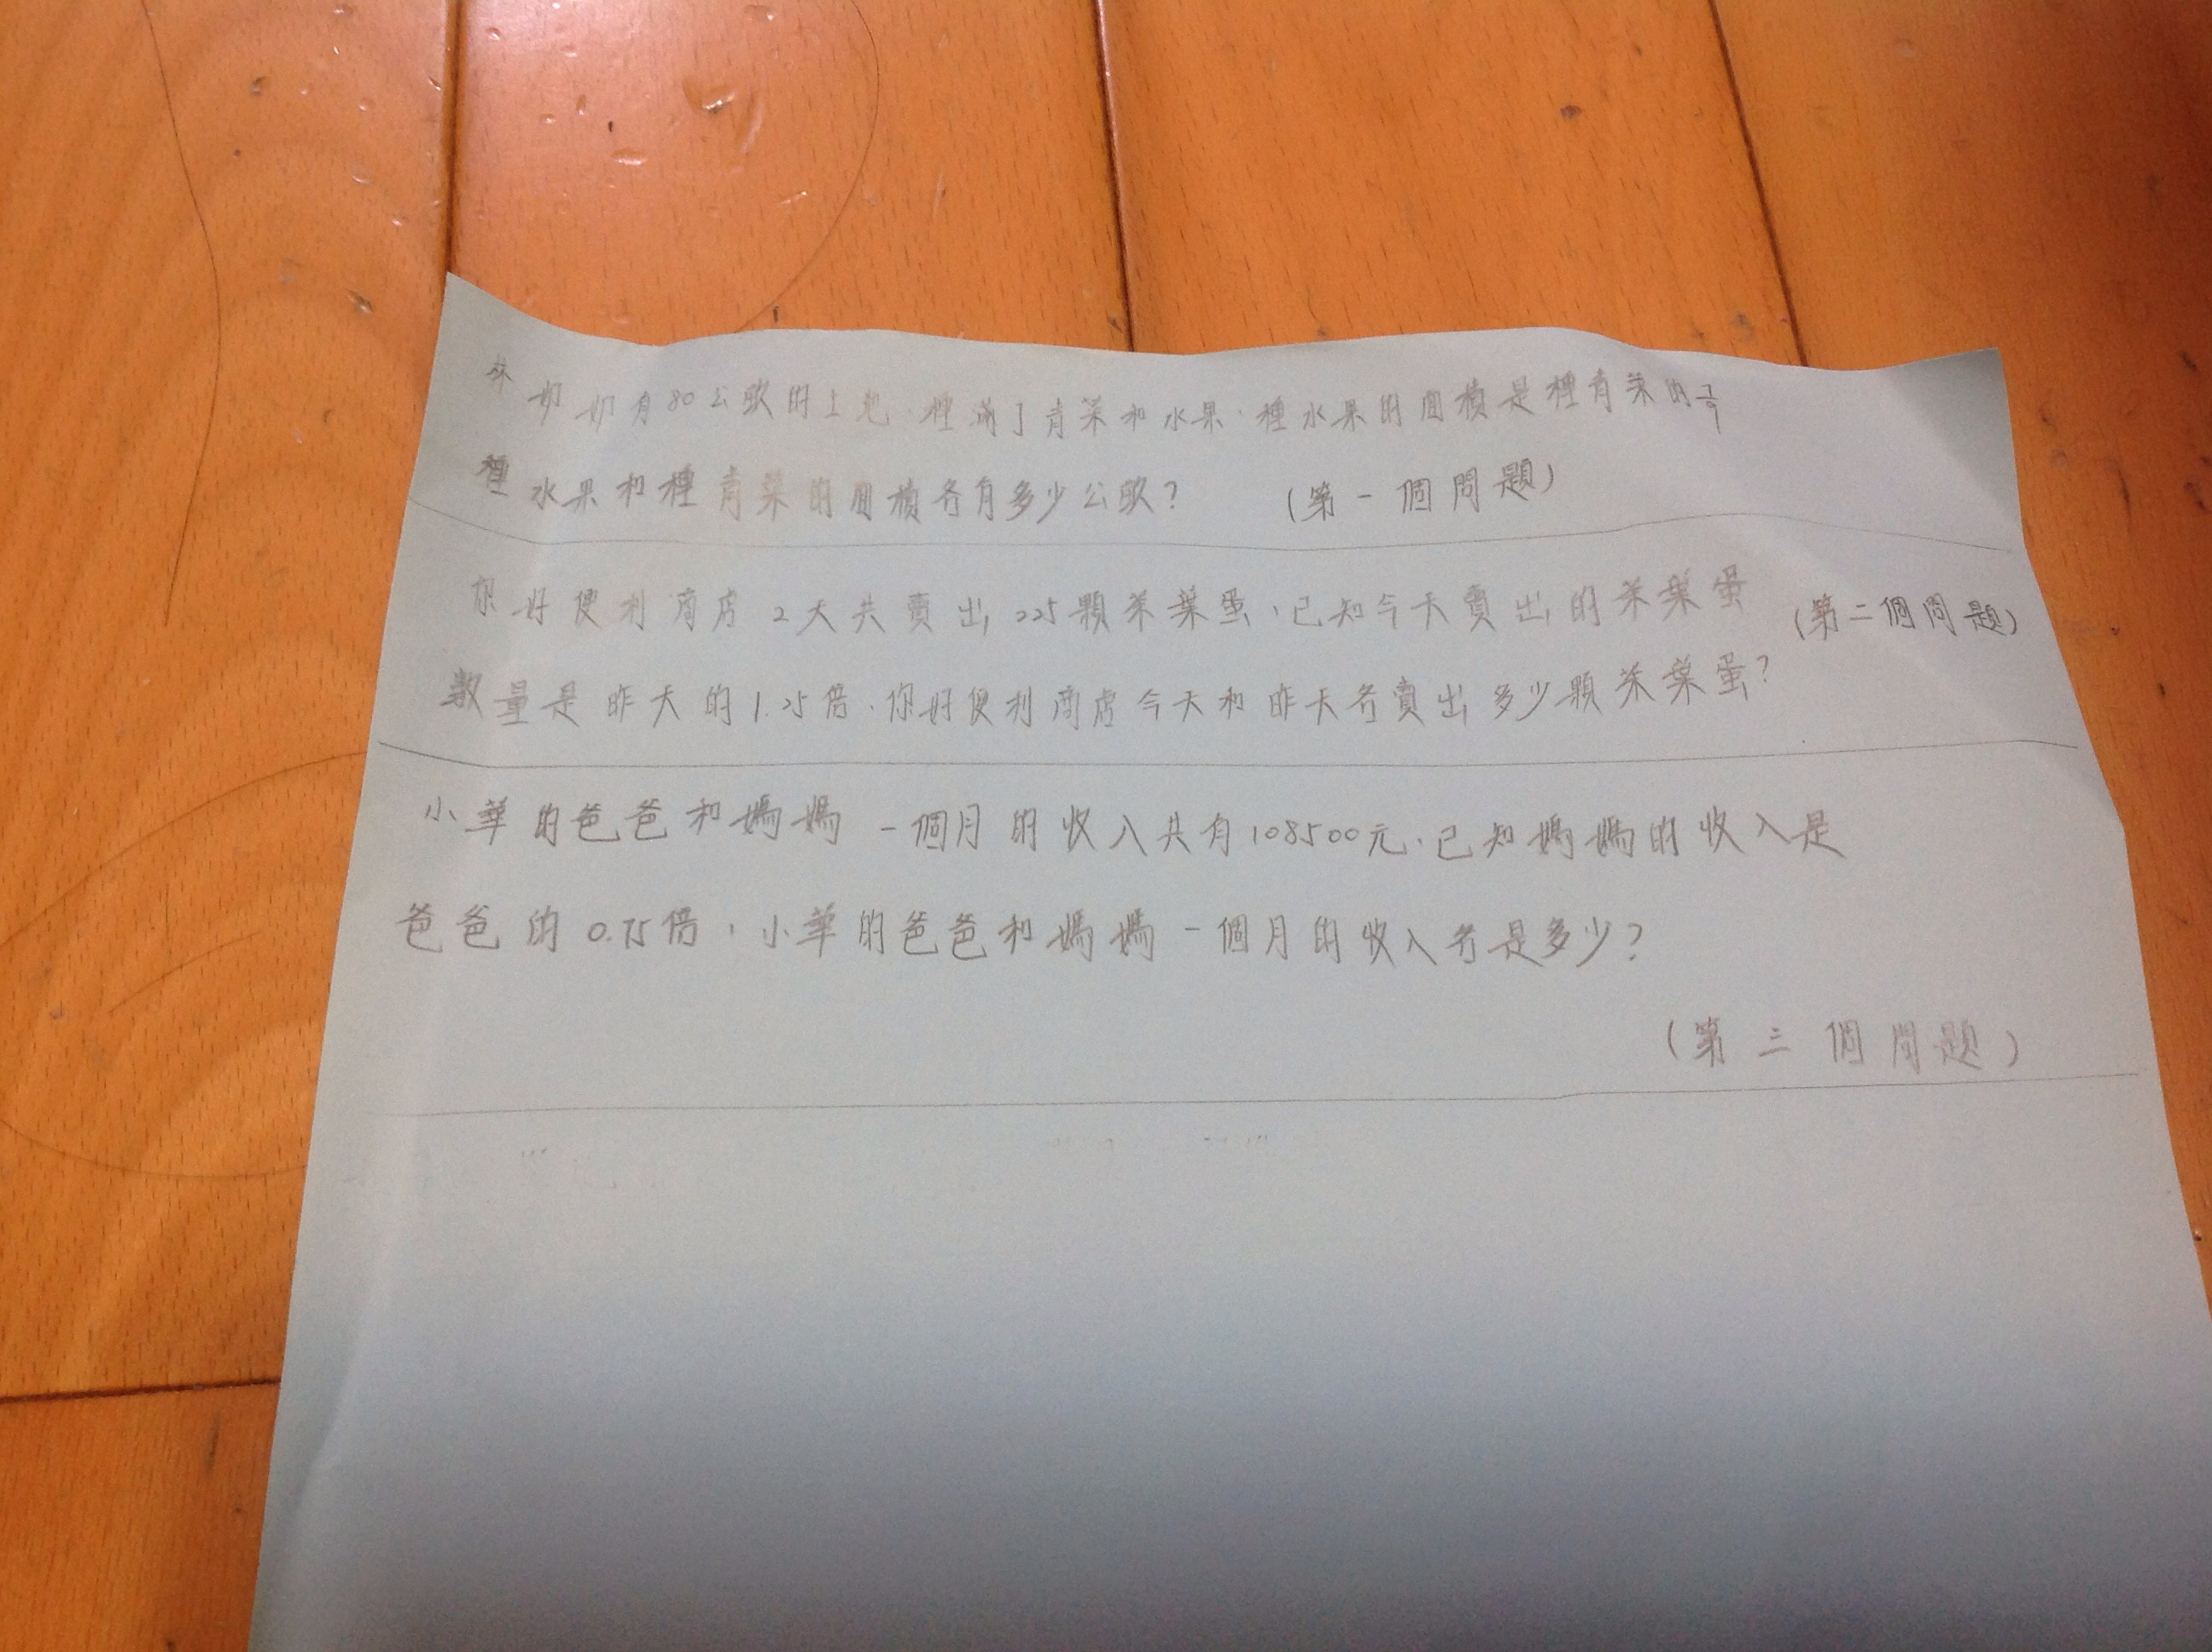 林奶奶有80公畝的土地,種滿了青菜和水果,種水果的面積是種青菜的7/9
種水果和種青菜的面積各有多少公畝? (第一個問題)
你好便利商店2天共賣出225顆茶葉蛋,已知今天賣出的茶葉蛋
(第二個問題)
數量是昨天的1.25倍,你好便利商店今天和昨天各賣出多少顆茶葉蛋?
小華的爸爸和媽媽一個月的收入共有108500元,已知媽媽的收入是
爸爸的0.75倍,小華的爸爸和媽媽一個月的收入各是多少?
(第三個問題)